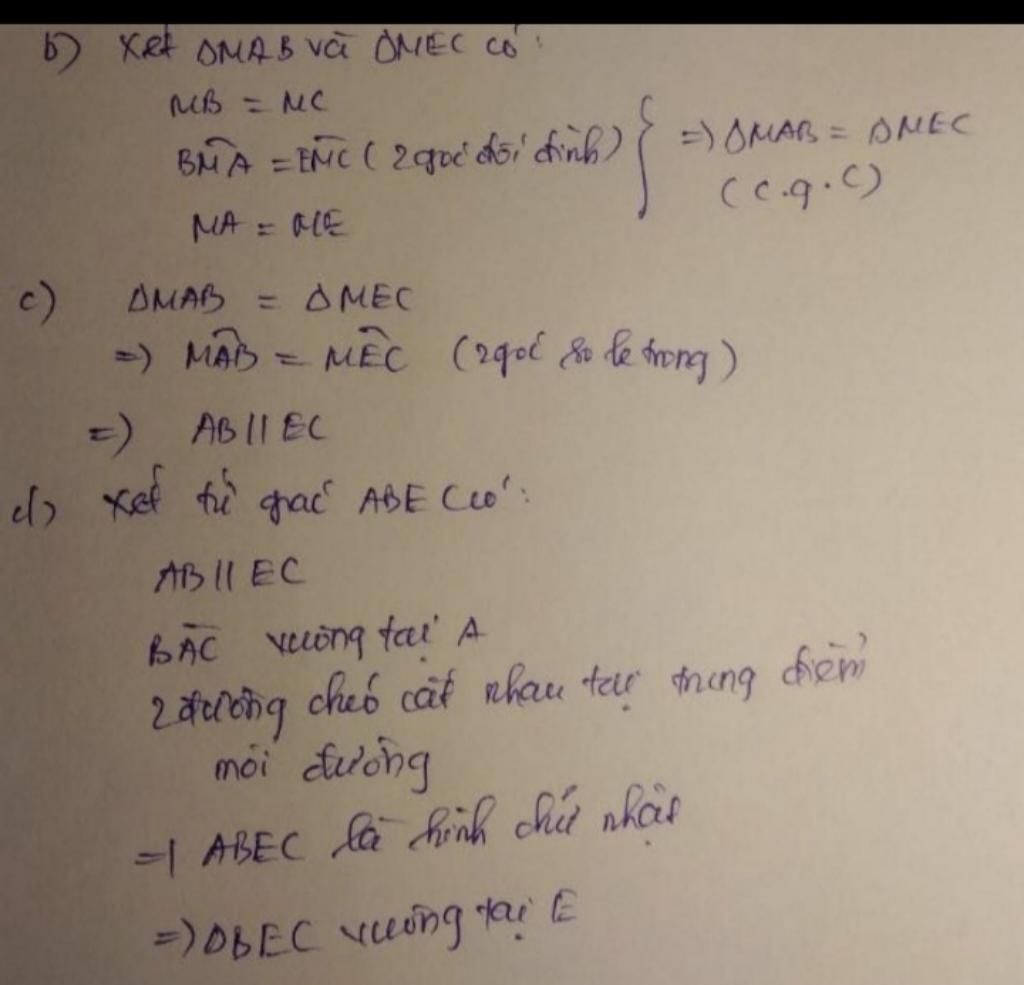 b) Xét ΔMAB và ΔMEC có:
MB = MC
BMA = EMC (2 góc đối đỉnh) } => ΔMAB = ΔMEC
(c.g.c)
MA = ME
c) ΔMAB = ΔMEC
=> MAB = MEC (2 góc so le trong)
=> AB // EC
d) Xét tứ giác ABEC có:
AB // EC
BAC vuông tại A
2 đường chéo cắt nhau tại trung điểm
mỗi đường
=> ABEC là hình chữ nhật
=> ΔBEC vuông tại E